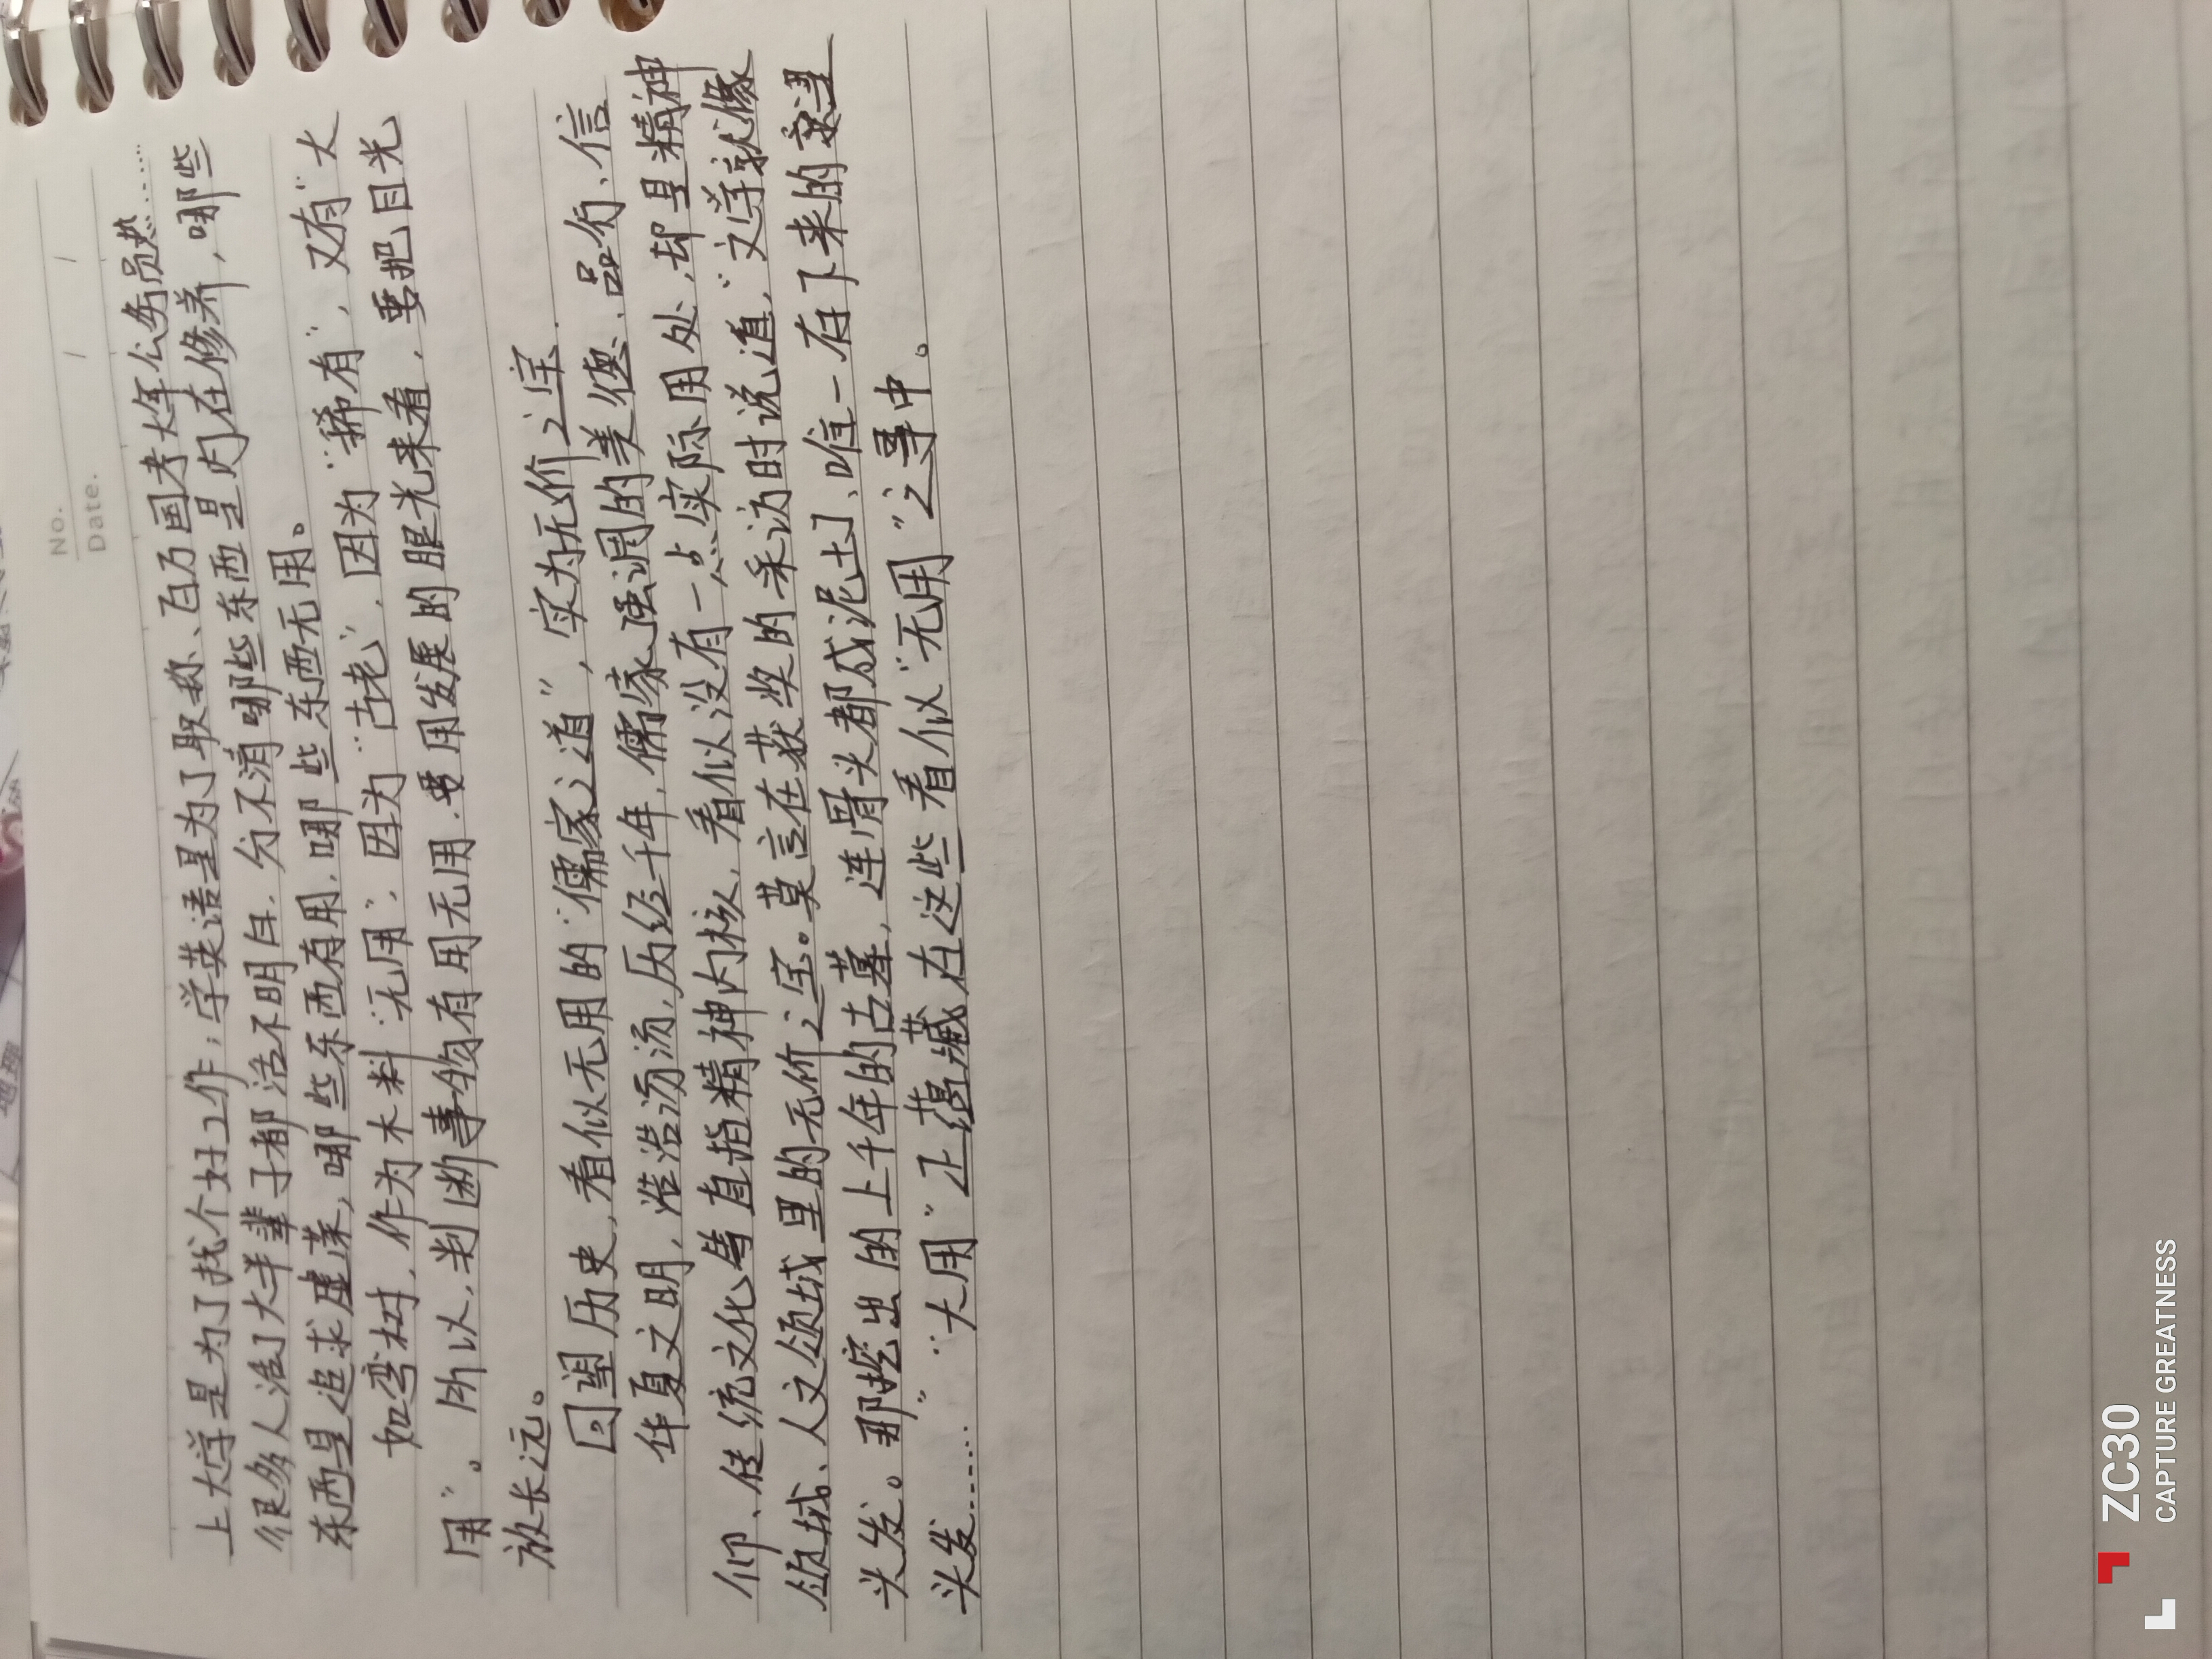 No.
Date. / /
上大学是为了找个好工作；学英语是为了职称、百万国考大年公务员热……
很多人活了大半辈子都活不明白，分不清哪些东西是内在修养，哪些
东西是追求虚荣，哪些东西有用，哪些东西无用。
如弯树，作为木料“无用”，因为“古老”，因为“稀有”，又有“大
用”。所以，判断事物有用无用，要用发展的眼光来看，要把目光
放长远。
回望历史，看似无用的“儒家之道”，实为无价之宝.
华夏文明，浩浩汤汤，历经千年，儒家强调的美德、品行、信
仰、传统文化等直指精神内核，看似没有一点实际用处，却是精神
领域、人文领域里的无价之宝。莫言在获奖的采访时说道，“文学就像
头发。那挖出的上千年的古墓，连骨头都成泥土，唯一存下来的就是
头发……”“大用”正蕴藏在这些看似“无用”之寻中。
ZC30
CAPTURE GREATNESS